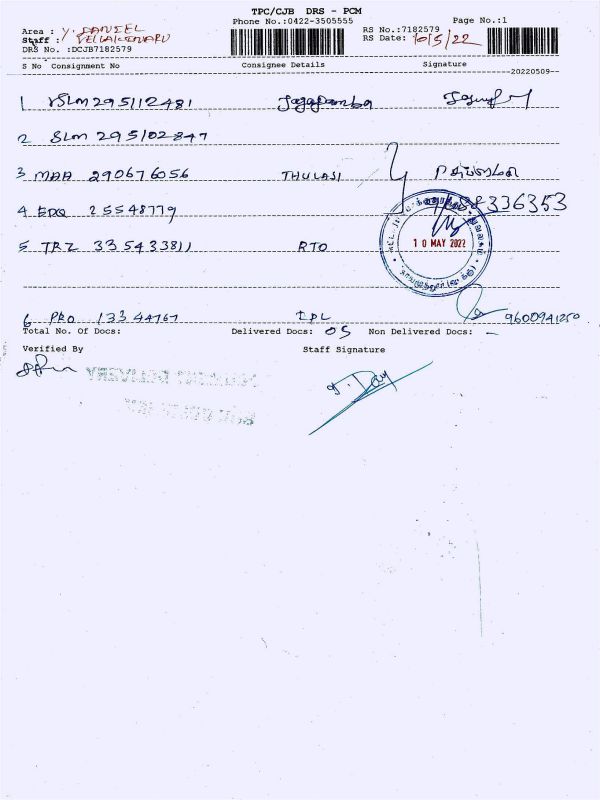 TPC/CJB DRS - PCM
Phone No.:0422-3505555
Page No.:1
Area : Y. DANIEL
RS No.:7182579
Staff : VELLAKINARU
RS Date: 10/5/22
DRS No. :DCJB7182579
S No Consignment No Consignee Details Signature
20220509
1 VSLM295112481 Jagadamba
2 SLM 295102847
3 MAA 290676056 THULASI
4 EDQ 25548779 336353
5 TRZ 335433811 RTO
10 MAY 2022
6 PRO 13344767 IPL 9600941250
Total No. Of Docs: Delivered Docs: 05 Non Delivered Docs: -
Verified By Staff Signature